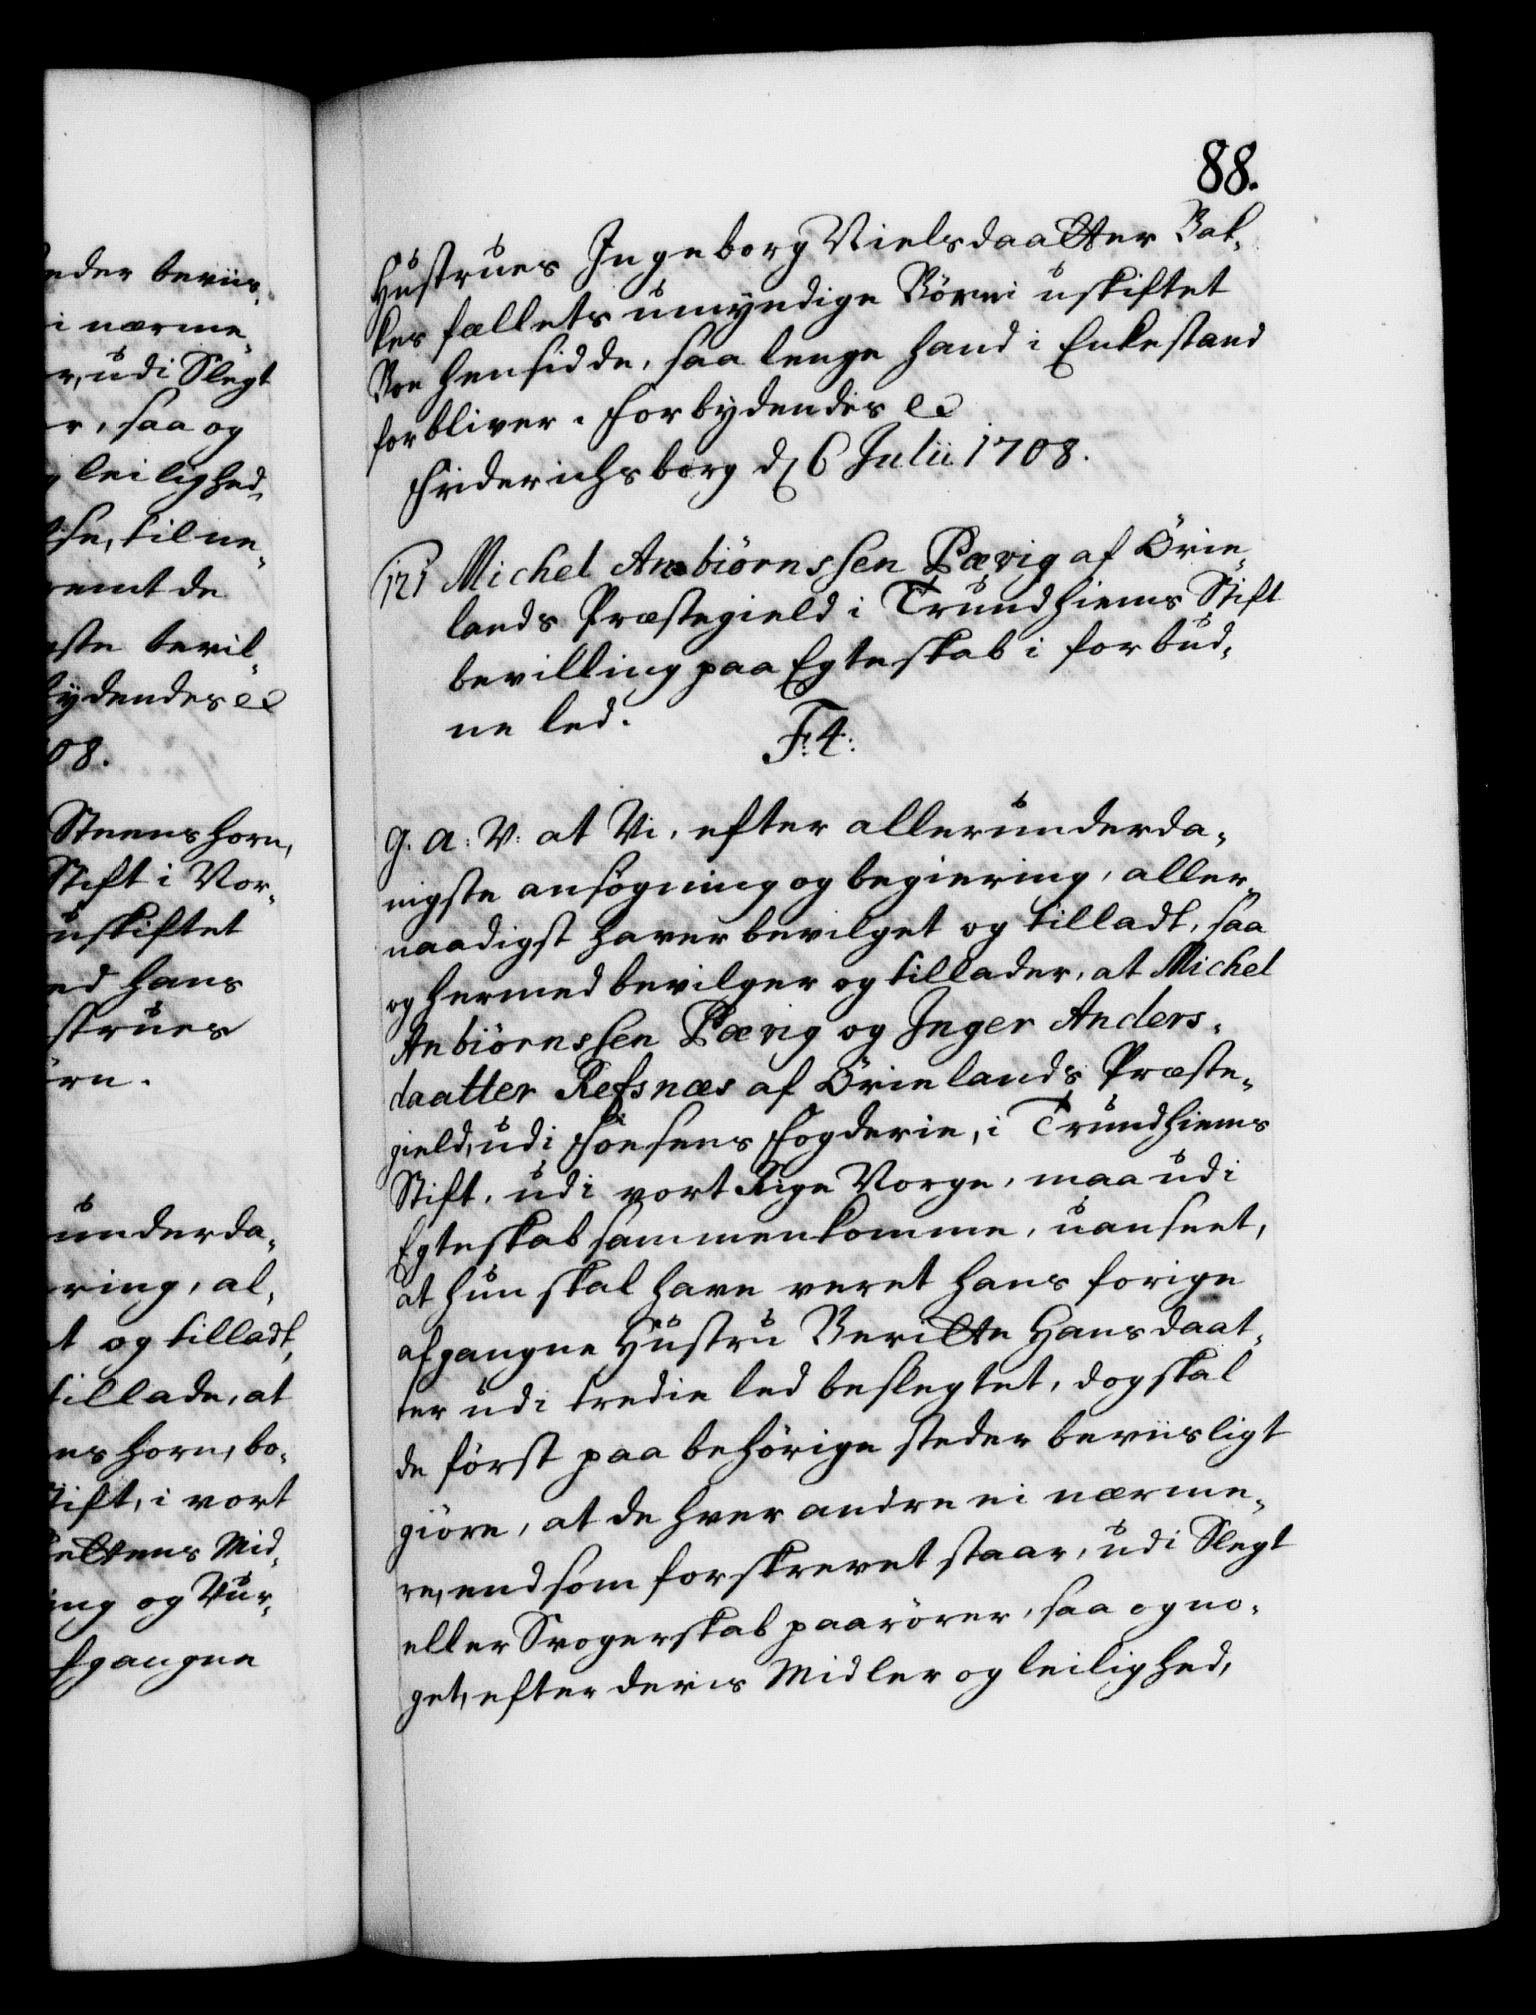 eder beviis,
i nærme,
r, udi Slegt
r, saa og
leilighed,
lse, til ne,
nemt de
ste bevil,
ydendes ec
08.
Steenshorn,
Stift i Nor,
uskiftet
ed hans
strues
örn.
underda,
ring, al,
t og tilladt,
tillade, at
ens horn, bo,
tift, i vort
eltens Mid,
ing og Vur,
fgangne
88.
Hustrues Ingeborg Nielsdaatter Bak,
kes fællets umyndige Börn i uskiftet
Boe hensidde, saa lenge hand i Enkestand
forbliver. Forbydendes ec
Friderichsborg d 6 Julii 1708.
121 Michel Anbiörnssen Pævig af Örie,
lands Præstegield i Trundhiems Stift
bevilling paa Egteskab i forbud,
ne led.
F: 4:
G. A: V: at Vi, efter allerunderda,
nigste ansögning og begiering, aller,
naadigst haver bevilget og tilladt, saa
og hermed bevilger og tillader, at Michel
Anbiörnssen Pævig og Inger Anders,
daatter Refsnæs af Örielands Præste,
gield, udi Foesens Fogderie, i Trundhiems
Stift, udi vort Rige Norge, maa udi
Egteskab sammenkomme, uanseet,
at hun skal have veret hans forige
afgangne Hustru Beritte Hansdaat,
ter udi tredie led beslegtet, dog skal
de först paa behörige steder beviisligt
giöre, at de hver andre ei nærme,
re, end som forskrevet staar, udi Slegt
eller Svogerskab paarörer, saa og no,
get, efter deris Midler og leilighed,